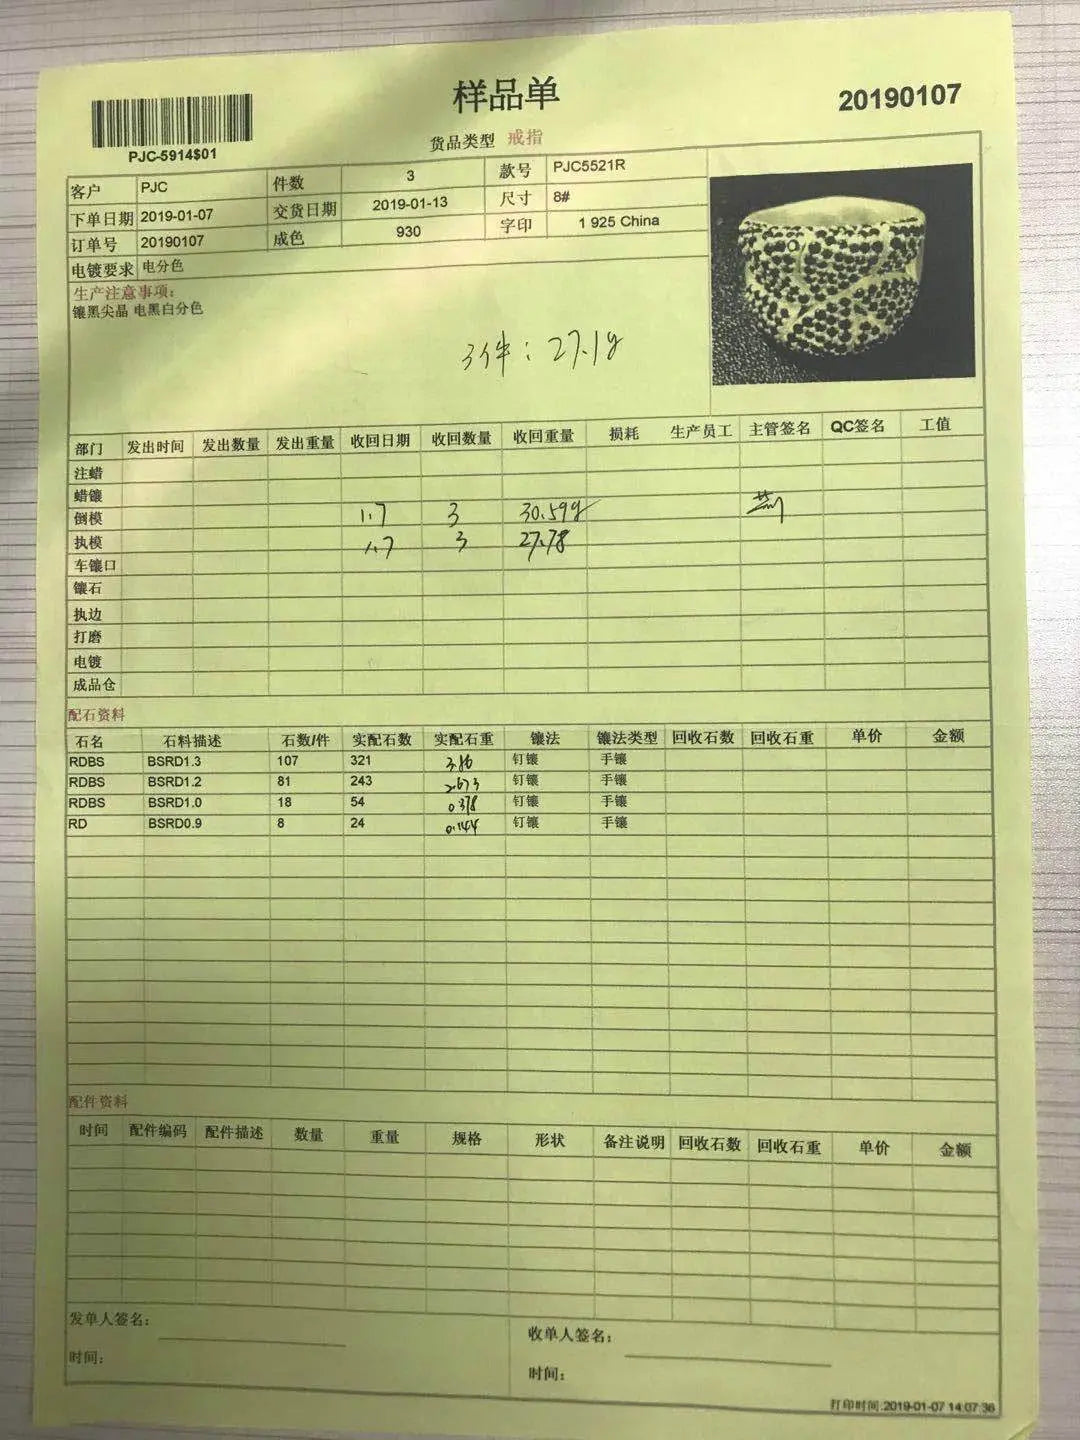 样品单
20190107
PJC-5914$01
货品类型 戒指
客户 PJC 件数 3 款号 PJC5521R
下单日期 2019-01-07 交货日期 2019-01-13 尺寸 8#
订单号 20190107 成色 930 字印 1 925 China
电镀要求 电分色
生产注意事项:
镶黑尖晶 电黑白分色
3件：27.1g
部门 发出时间 发出数量 发出重量 收回日期 收回数量 收回重量 损耗 生产员工 主管签名 QC签名 工值
注蜡
蜡镶
倒模 1.7 3 30.59g
执模 1.7 3 27.78
车镶口
镶石
执边
打磨
电镀
成品仓
配石资料
石名 石料描述 石数/件 实配石数 实配石重 镶法 镶法类型 回收石数 回收石重 单价 金额
RDBS BSRD1.3 107 321 3.86 钉镶 手镶
RDBS BSRD1.2 81 243 2.673 钉镶 手镶
RDBS BSRD1.0 18 54 0.378 钉镶 手镶
RD BSRD0.9 8 24 0.144 钉镶 手镶
配件资料
时间 配件编码 配件描述 数量 重量 规格 形状 备注说明 回收石数 回收石重 单价 金额
发单人签名:
收单人签名:
时间:
时间:
打印时间:2019-01-07 14:07:36